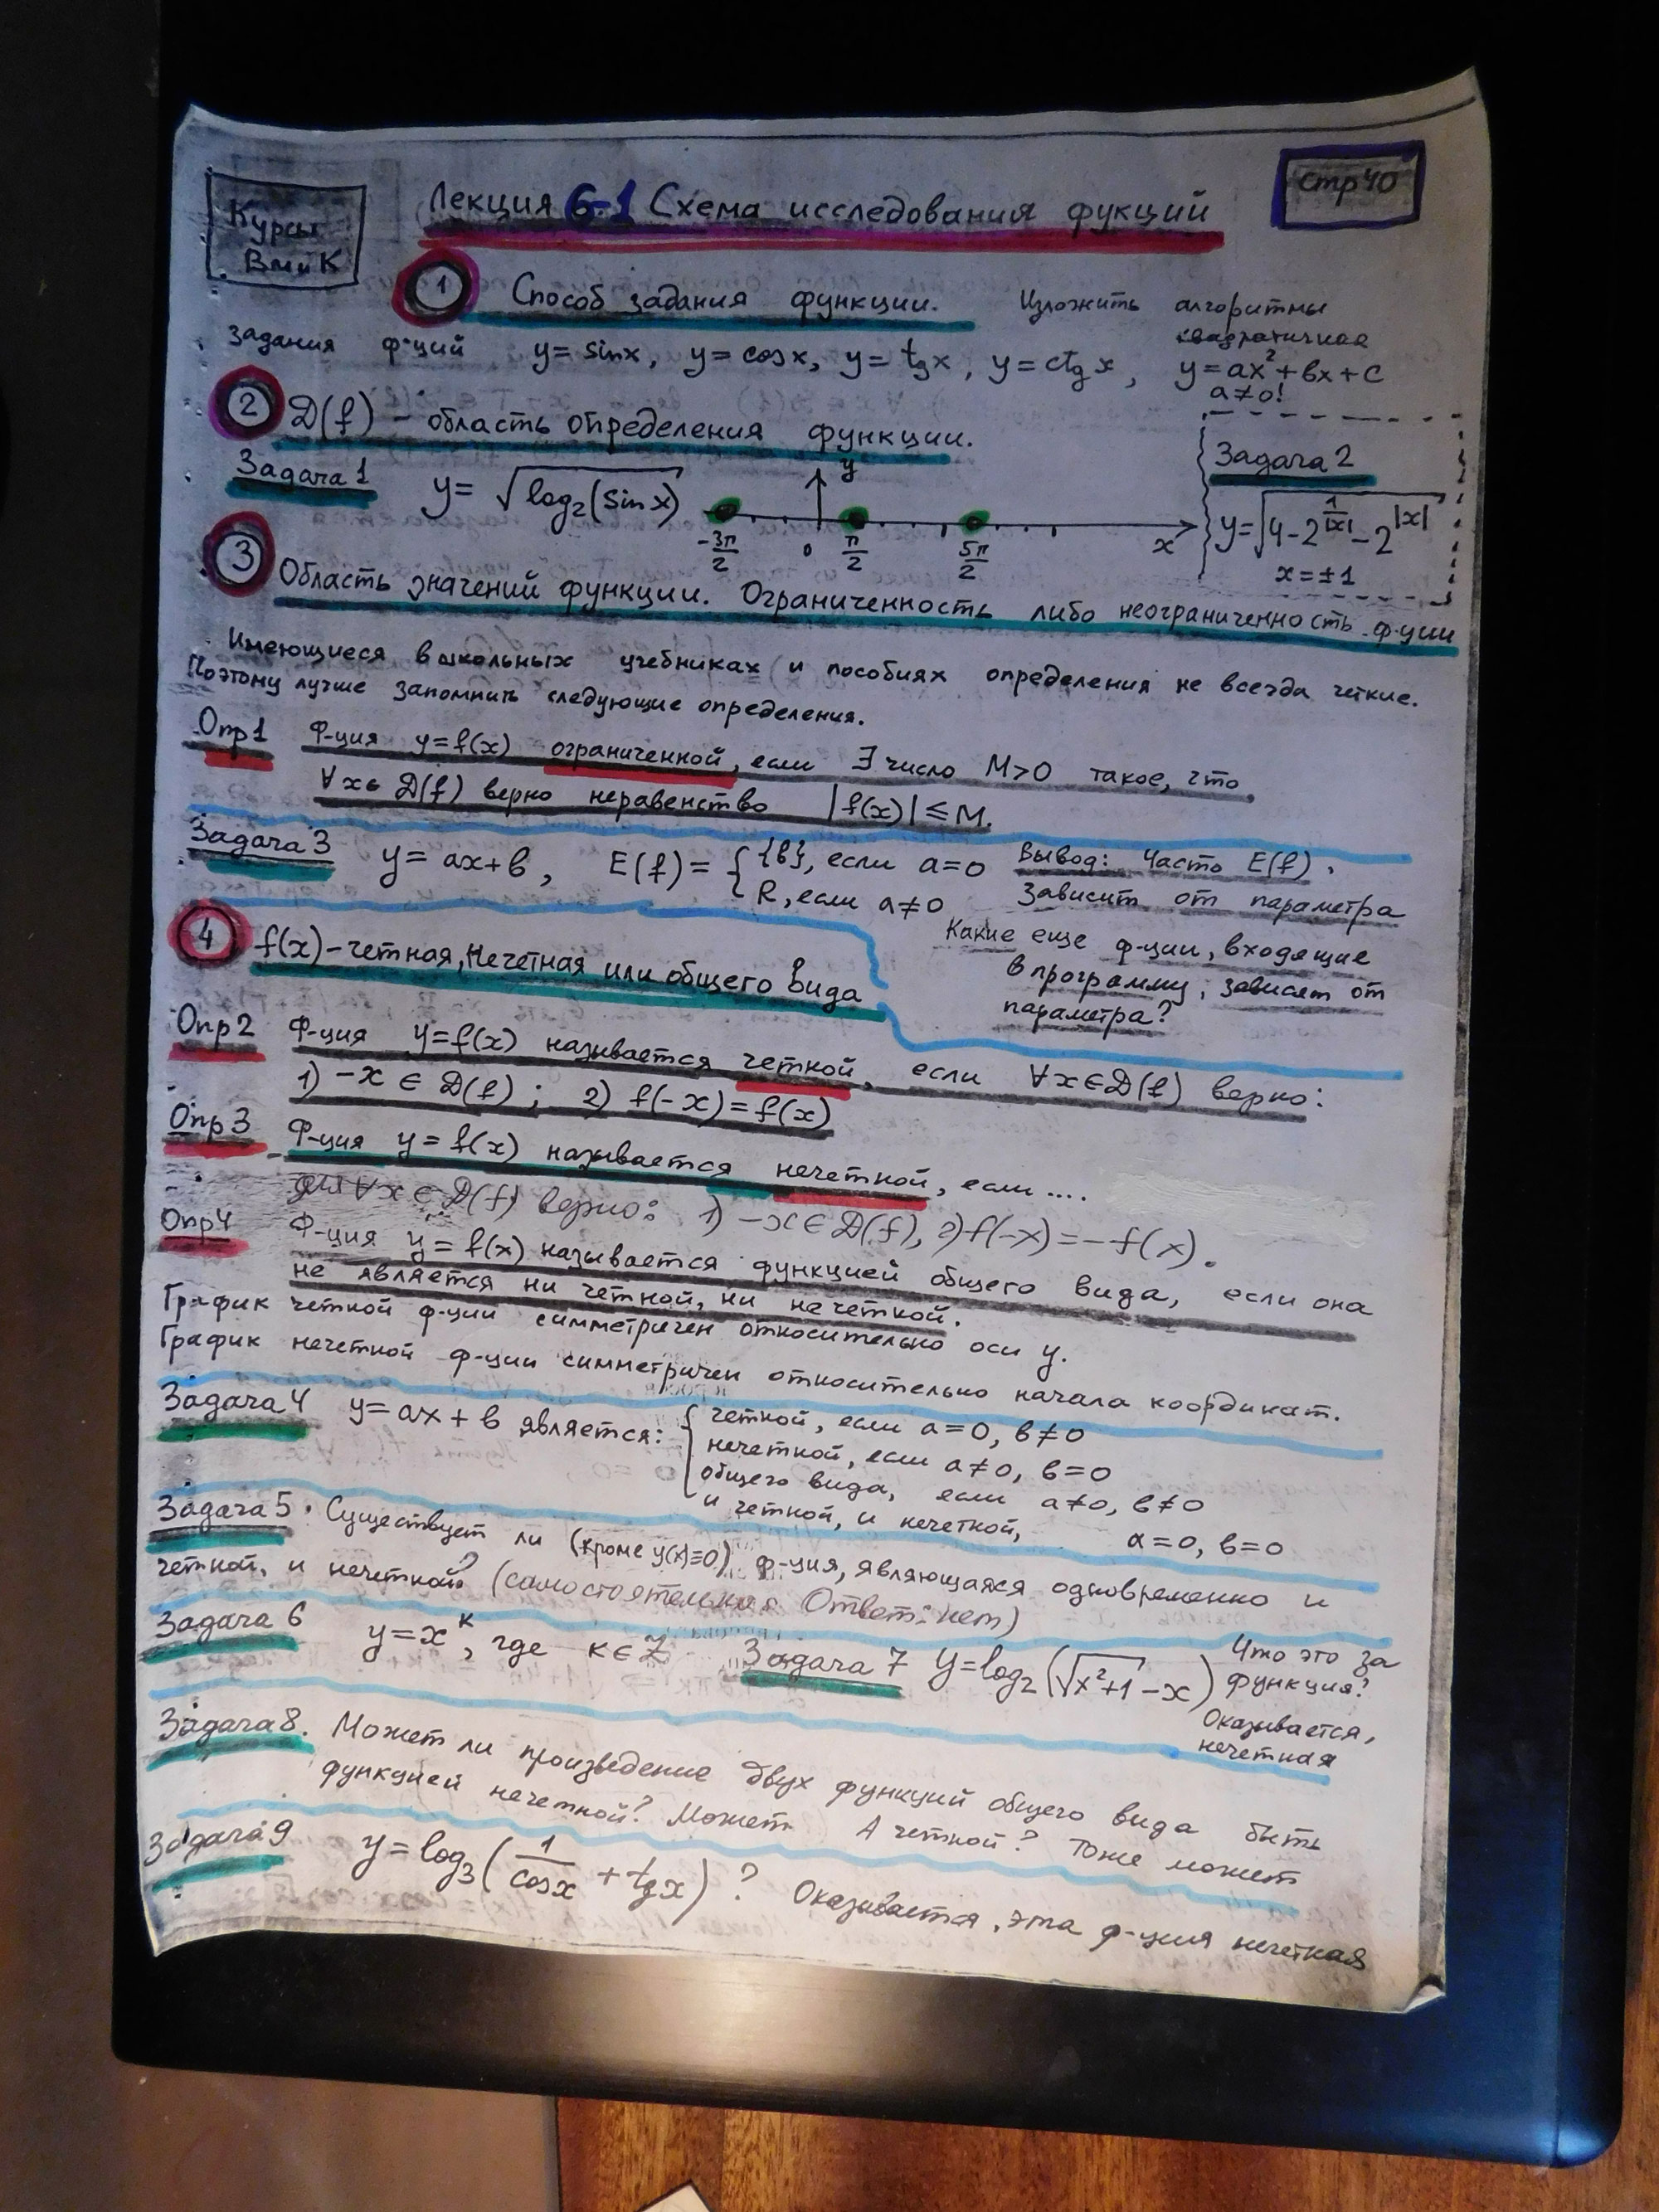 Курсы
ВМиК
Лекция 6-1 Схема исследования фукций
стр 40
1 Способ задания функции. Изложить алгоритмы
задания ф-ций y=sinx, y=cosx, y=tgx, y=ctgx, квадратичная y=ax²+bx+c
a≠0!
2 D(f) – область определения функции.
Задача 1 y=√log₂(sinx)
y
-3π/2 0 π/2 5π/2 x
Задача 2
y=√4-2^(1/|x|)-2^|x|
x=±1
3 Область значений функции. Ограниченность либо неограниченность ф-ции
Имеющиеся в школьных учебниках и пособиях определения не всегда четкие.
Поэтому лучше запомнить следующие определения.
Опр1 Ф-ция y=f(x) ограниченной, если ∃ число M>0 такое, что
∀x∈D(f) верно неравенство |f(x)|≤M.
Задача 3 y=ax+b, E(f)= { {b}, если a=0
R, если a≠0
Вывод: Часто E(f)
зависит от параметра
Какие еще ф-ции, входящие
в программу, зависят от
параметра?
4 f(x)–четная, нечетная или общего вида
Опр2 Ф-ция y=f(x) называется четной, если ∀x∈D(f) верно:
1) -x∈D(f); 2) f(-x)=f(x)
Опр3 Ф-ция y=f(x) называется нечетной, если ....
для ∀x∈D(f) верно: 1) -x∈D(f), 2) f(-x)=-f(x).
Опр4 Ф-ция y=f(x) называется функцией общего вида, если она
не является ни четной, ни нечетной.
График четной ф-ции симметричен относительно оси y.
График нечетной ф-ции симметричен относительно начала координат.
Задача 4 y=ax+b является: { четной, если a=0, b≠0
нечетной, если a≠0, b=0
общего вида, если a≠0, b≠0
и четной, и нечетной, a=0, b=0
Задача 5. Существует ли (кроме y(x)≡0) ф-ция, являющаяся одновременно и
четной, и нечетной? (самостоятельно Ответ: нет)
Задача 6 y=x^k, где k∈Z
Задача 7 y=log₂(√x²+1-x) Что это за
функция?
Оказывается,
нечетная
Задача 8. Может ли произведение двух функций общего вида быть
функцией нечетной? Может А четной? Тоже может
Задача 9 y=log₃(1/cosx+tgx)? Оказывается, эта ф-ция нечетная